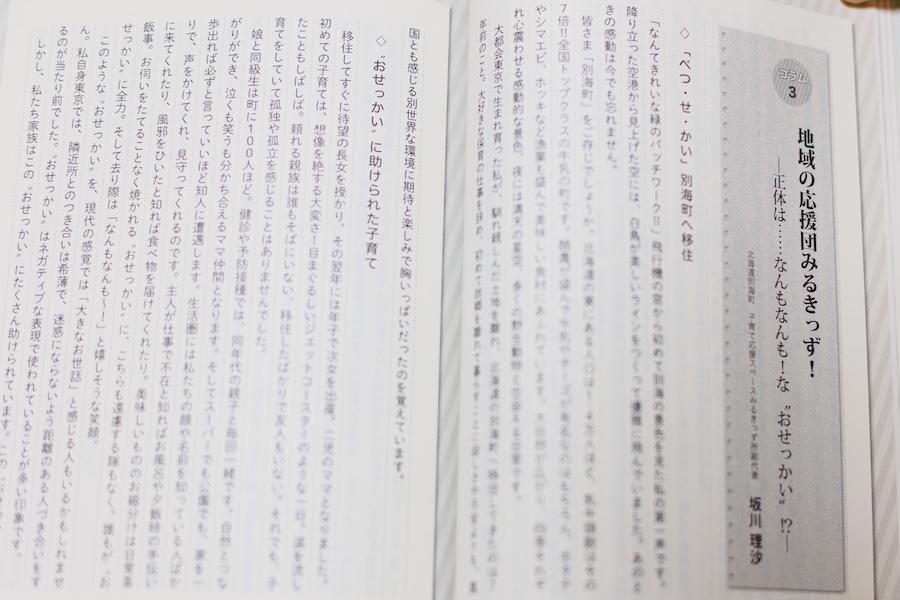 コラム
3
地域の応援団みるきっず！
―正体は……なんもなんも！な〝おせっかい〟⁉―
北海道別海町 子育て応援スペースみるきっず所副代表
坂川 理沙
◇「べつ・せ・かい」別海町へ移住
「なんてきれいな緑のパッチワーク‼」飛行機の窓から初めて別海の景色を見た私の第一声です。
降り立った空港から見上げた空には、白鳥が美しいラインをつくって優雅に飛んでいました。あのと
きの感動は今でも忘れません。
皆さま「別海町」をご存じでしょうか。北海道の東にある人口は
7倍‼全国トップクラスの牛乳の町です。酪農が盛んで
やシマエビ、ホッキなど漁業も盛んで美味しい食材にあふれています。
れ心震わせる感動的な景色、夜には満天の星空、多くの野生動物
大都会東京で生まれ育った私が、馴れ親しんだ土地を離れ、北海道の別海町へ移住してきたのは
年前のこと。大好きな保育の仕事を辞め、初めて故郷を離れて暮らすことに
国とも感じる別世界な環境に期待と楽しみで胸いっぱいだったのを覚えています。
◇〝おせっかい〟に助けられた子育て
移住してすぐに待望の長女を授かり、その翌年には年子で次女を出産、二児のママとなりました。
初めての子育ては、想像を絶する大変さ！目まぐるしいジェットコースターのような一日。涙を流し
たこともしばしば。頼れる親族は誰もそばにいない、移住したばかりで友人もいない。それでも、子
育てをしていて孤独や孤立を感じることはありませんでした。
娘と同級生は町に100人ほど。健診や予防接種では、同年代の親子と毎回一緒です。自然とつな
がりができ、泣くも笑うも分かち合えるママ仲間となります。そしてスーパーでも公園でも、家を一
歩出れば必ずと言っていいほど知人に遭遇します。生活圏には私たちの顔や名前を知っている人ばか
りで、声をかけてくれ、見守ってくれるのです。主人が仕事で不在と知ればお風呂や夕飯時の手伝い
に来てくれたり、風邪をひいたと知れば食べ物を届けてくれたり。美味しいもののお裾分けは日常茶
飯事。お伺いをたてることなく焼かれる〝おせっかい〟に、こちらも遠慮する隙もなく。誰もが〝お
せっかい〟に全力。そして去り際は「なんもなんも！」と嬉しそうな笑顔。
このような〝おせっかい〟を、現代の感覚では「大きなお世話」と感じる人もいるかもしれませ
ん。私自身東京では、隣近所とのつき合いは希薄で、迷惑にならないよう距離のある人づき合いをす
るのが当たり前でした。〝おせっかい〟はネガティブな表現で使われていることが多い印象です。
しかし、私たち家族はこの〝おせっかい〟にたくさん助けられています。この